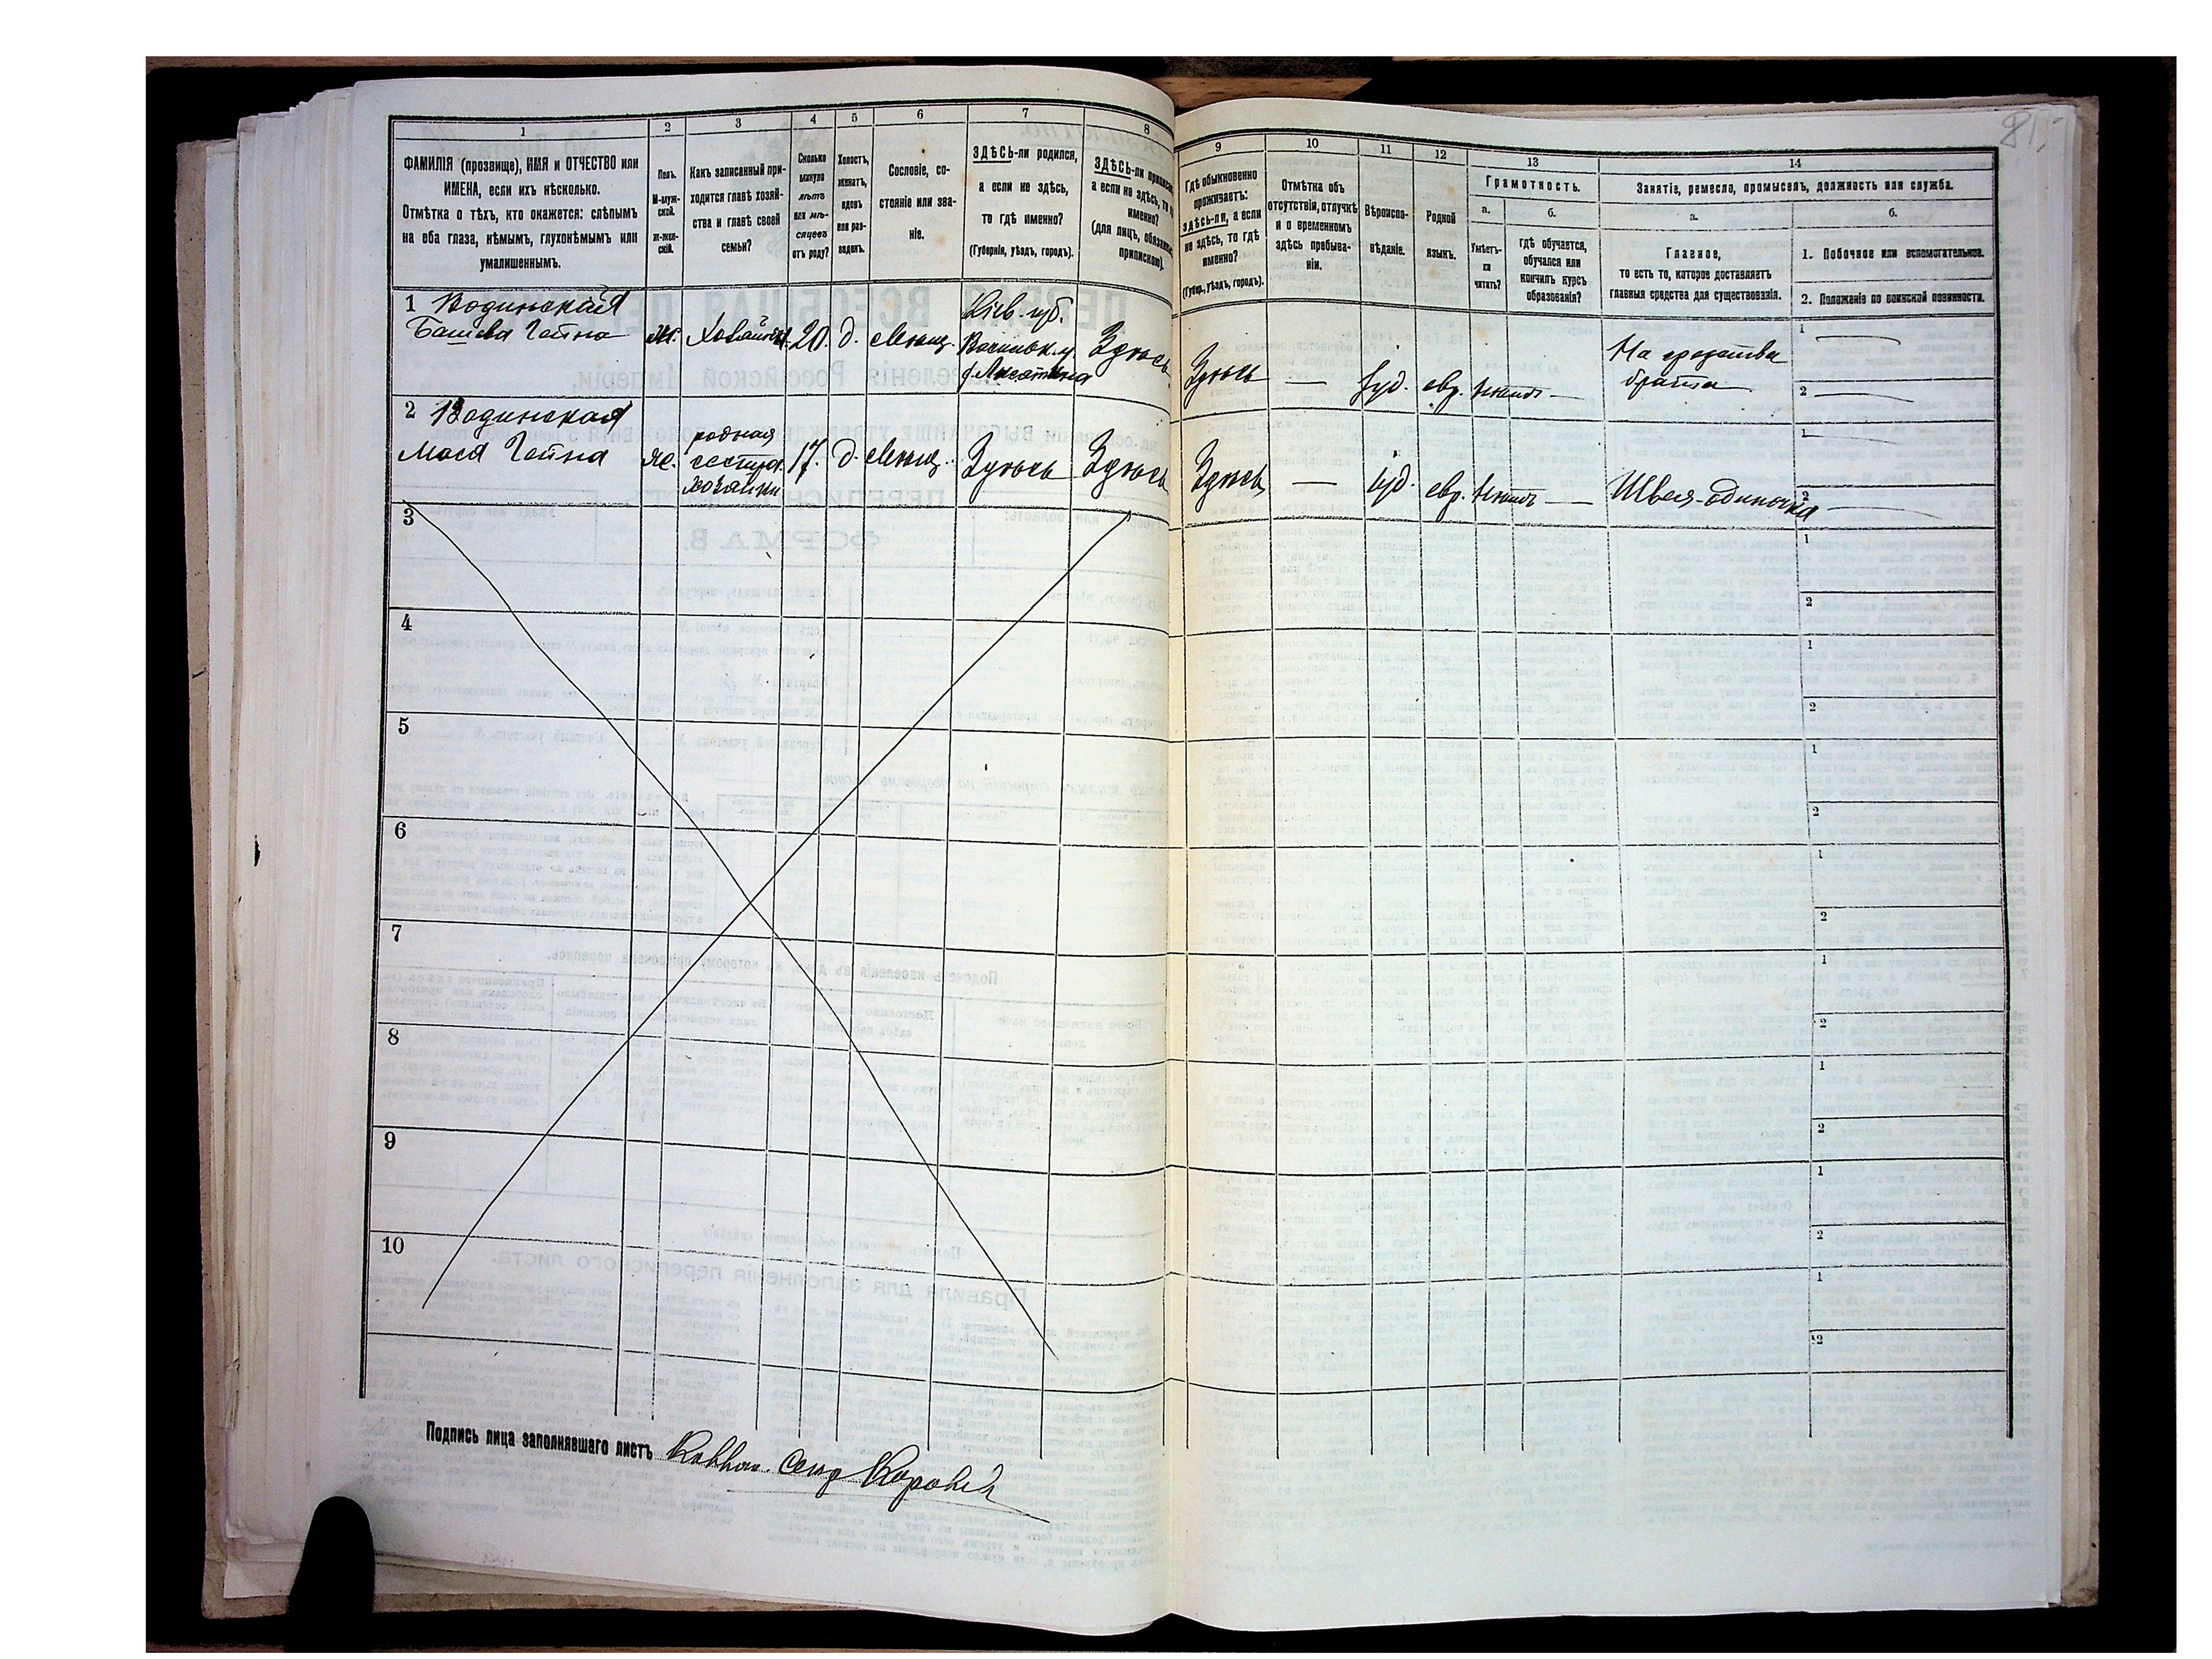 81
1
2
3
4
5
6
7
8
ФАМИЛІЯ (прозвище), ИМЯ и ОТЧЕСТВО или
ИМЕНА, если ихъ нѣсколько.
Отмѣтка о тѣхъ, кто окажется: слѣпымъ
на оба глаза, нѣмымъ, глухонѣмымъ или
умалишеннымъ.
Полъ.
М-муж-
ской.
ж-жен-
скій.
Какъ записанный при-
ходится главѣ хозяй-
ства и главѣ своей
семьи?
Сколько
минуло
лѣтъ
или мѣ-
сяцевъ
отъ роду?
Холостъ,
женатъ,
вдовъ
или раз-
веденъ.
Сословіе, со-
стояніе или зва-
ніе.
ЗДѢСЬ-ли родился,
а если не здѣсь,
то гдѣ именно?
(Губернія, уѣздъ, городъ).
ЗДѢСЬ-ли
а если не здѣсь, то
именно?
(для лицъ,
припискою).
9
10
11
12
13
14
Гдѣ обыкновенно
проживаетъ:
здѣсь-ли, а если
не здѣсь, то гдѣ
именно?
(Губер., уѣздъ, городъ).
Отмѣтка объ
отсутствіи, отлучкѣ
и о временномъ
здѣсь пребыва-
ніи.
Вѣроиспо-
вѣданіе.
Родной
языкъ.
Грамотность.
а.
б.
Умѣетъ-
ли
читать?
гдѣ обучается,
обучался или
кончилъ курсъ
образованія?
Занятіе, ремесло, промыселъ, должность или служба.
а.
б.
Главное,
то есть то, которое доставляетъ
главныя средства для существованія.
1. Побочное или вспомогательное.
2. Положеніе по воинской повинности.
1 Водинская
Башева Гетна
Ж.
Хозяйка
20.
д.
Мѣщ.
Кіев. губ.
Васильк. у.
Здѣсь
Здѣсь
—
Іуд.
евр.
Нѣтъ
—
На средства
брата
1 —
2 —
2 Водинская
Мася Гетна
Ж.
родная
сестра
хозяйки
17.
д.
Мѣщ.
Здѣсь
Здѣсь
Здѣсь
—
Іуд.
евр.
Нѣтъ
—
Швея-одиночка
1 —
2 —
3
1
2
4
1
2
5
1
2
6
1
2
7
1
2
8
1
2
9
1
2
10
1
2
Подпись лица заполнявшаго листъ